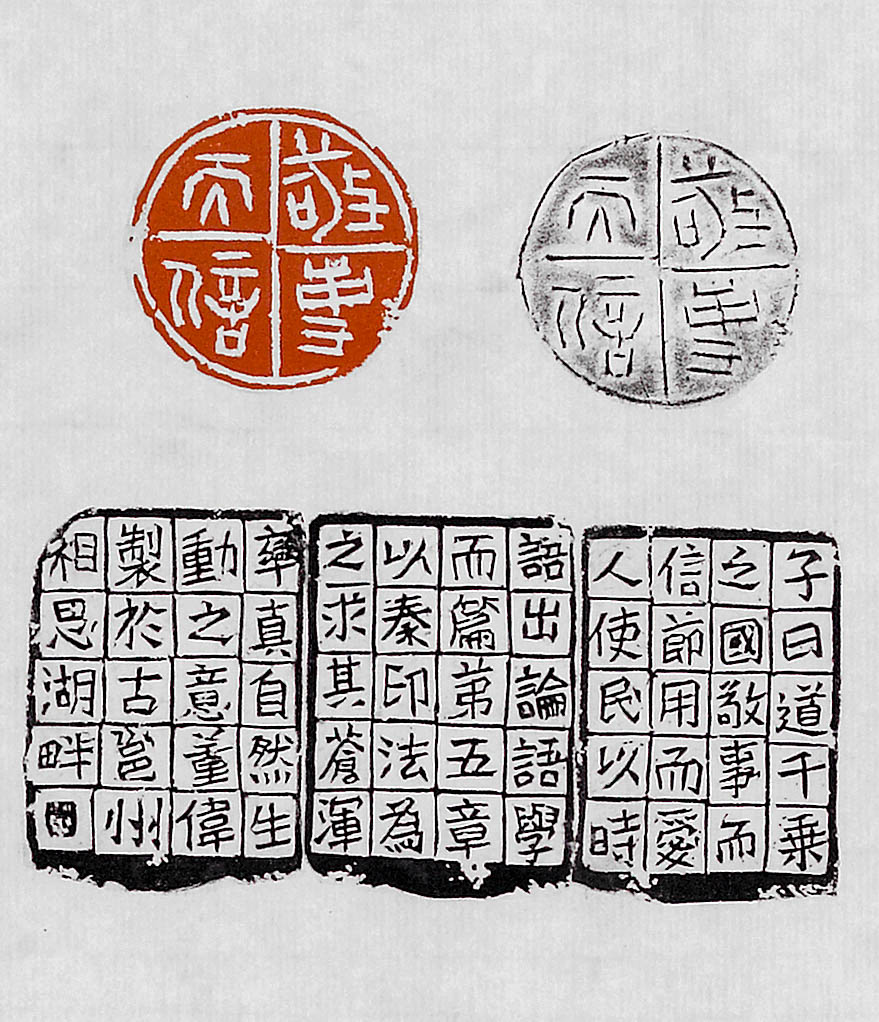 敬事
而信
敬事
而信
子曰道千乗
之國敬事而
信節用而愛
人使民以時
語出論語學
而篇第五章
以秦印法為
之求其蒼渾
率真自然生
動之意董偉
製於古邕州
相思湖畔